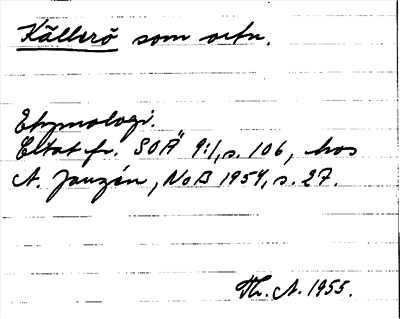 Källerö som ortn.
Etymologi.
Citat fr. SOÄ 9:1, s. 106, hos
A. Janzén, NoB 1954, s. 27.
Th. A. 1955.